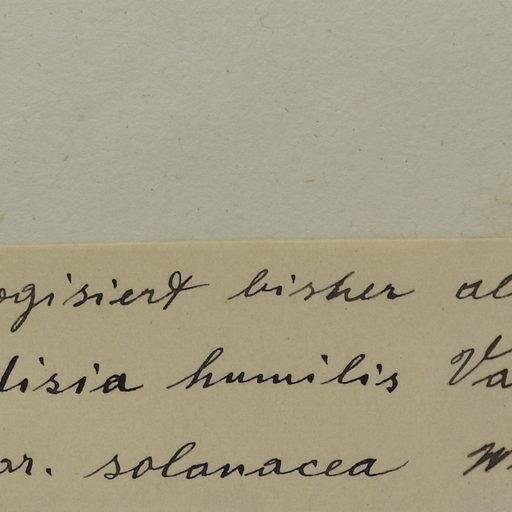 ogisiert bisher al
disia humilis Va
ar. solanacea